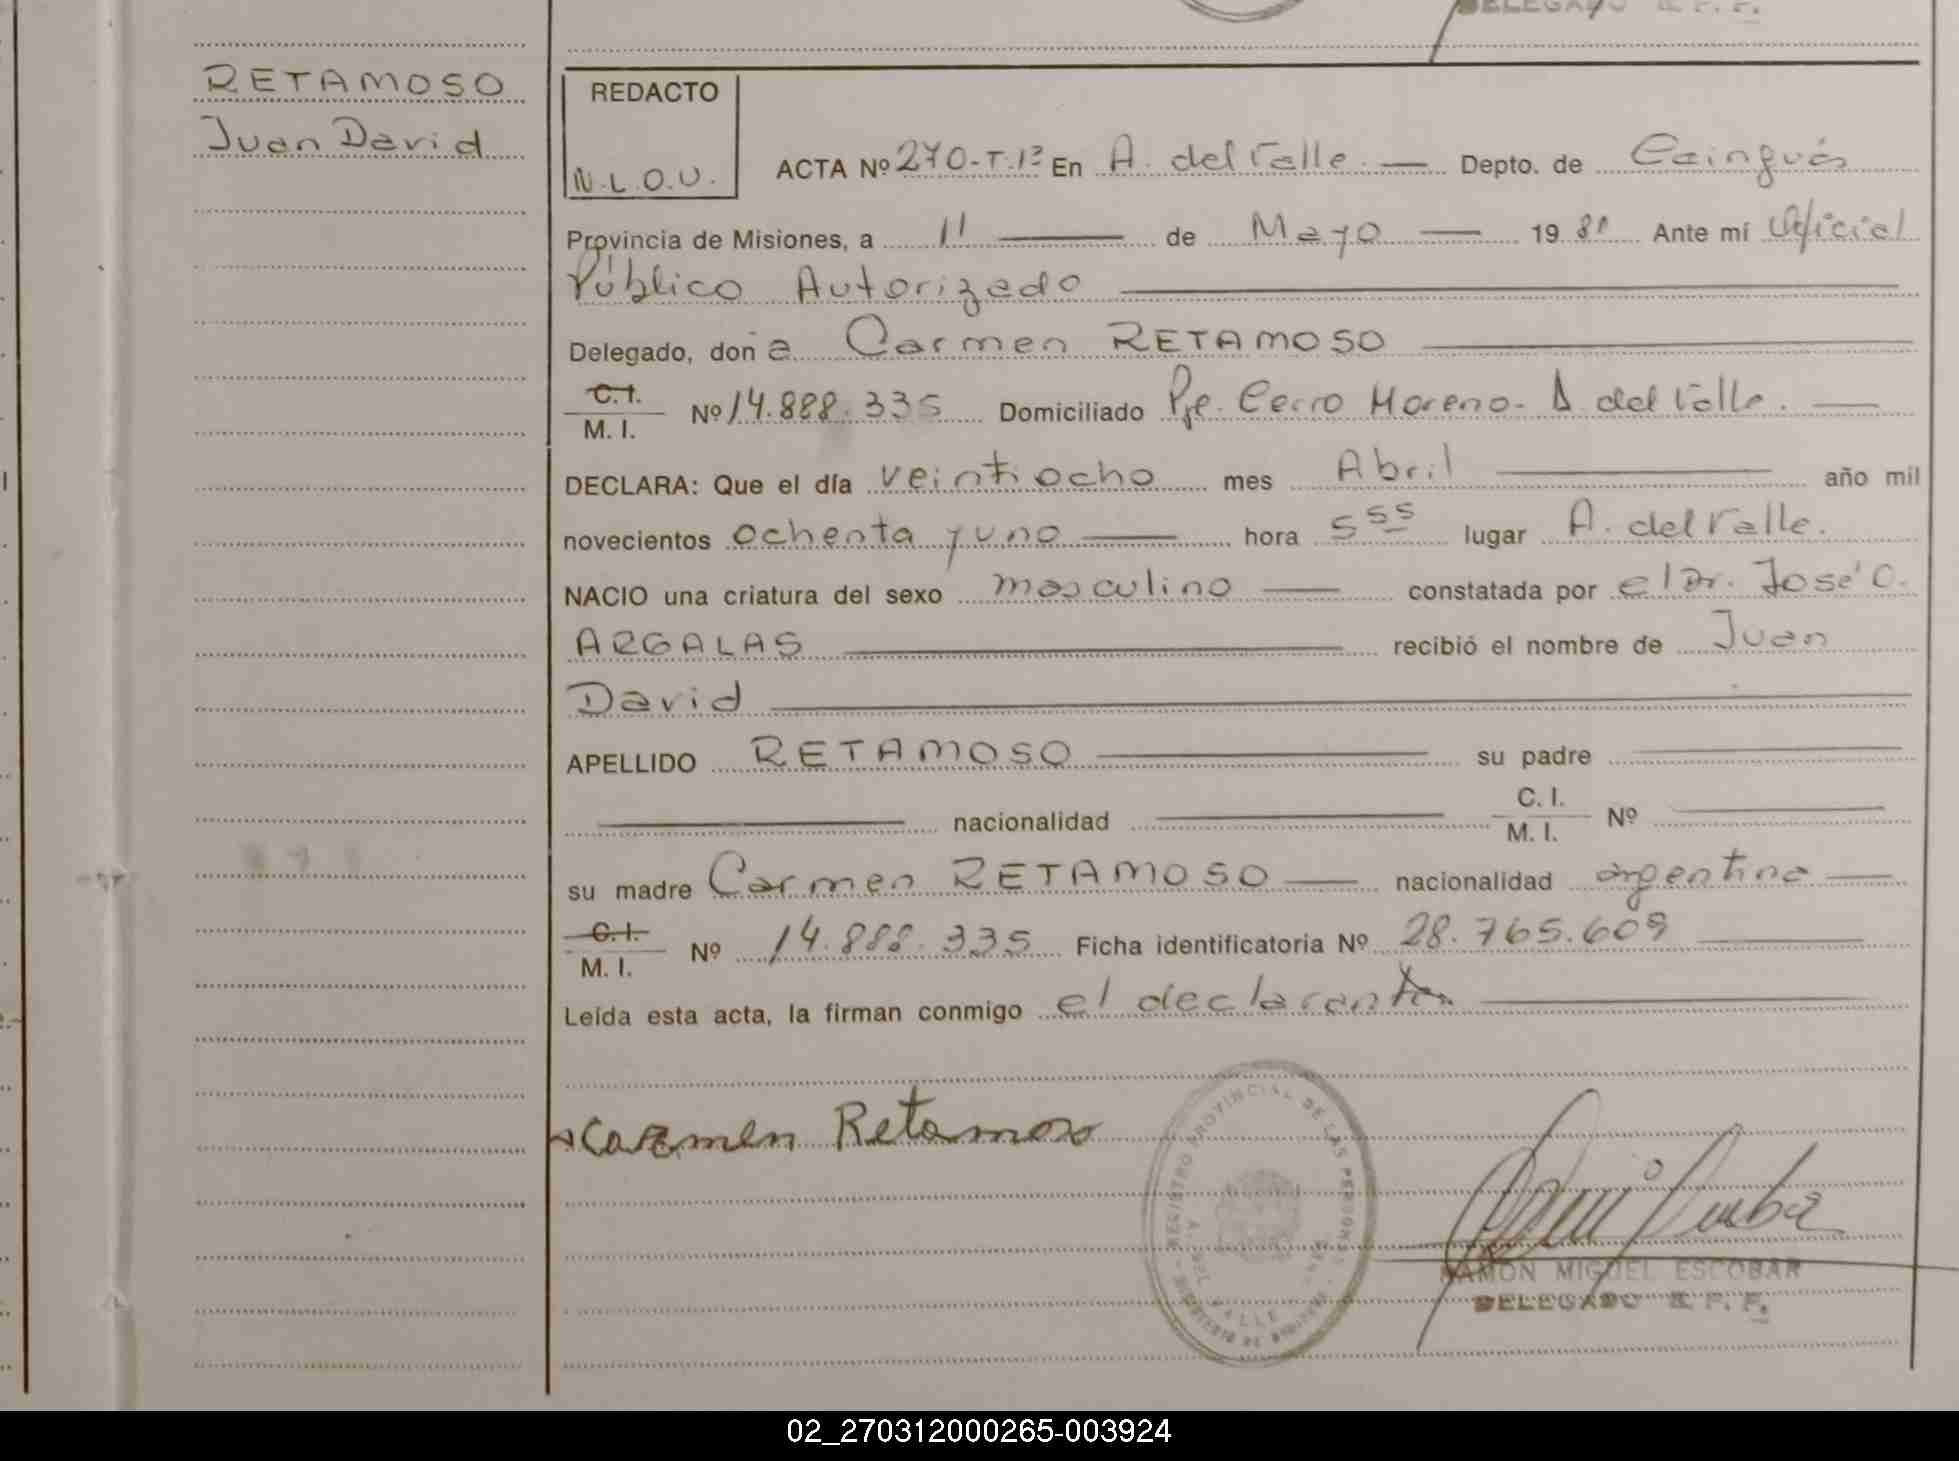 DELEGADO R. P. P.
RETAMOSO
Juan David
REDACTO
N.L.O.U.
ACTA Nº 270-T.1º En A. del Valle. — Depto. de Cainguás
Provincia de Misiones, a 11 — de Mayo — 19 81 Ante mí Oficial
Público Autorizado —
Delegado, don a Carmen RETAMOSO —
C.I.
M. I. Nº 14.888.335 Domiciliado Pje. Cerro Moreno- A. del Valle. —
DECLARA: Que el día veintiocho mes Abril — año mil
novecientos ochenta y uno — hora 5 55 lugar A. del Valle.
NACIO una criatura del sexo masculino — constatada por el Dr. José O.
ARGALAS — recibió el nombre de Juan
David —
APELLIDO RETAMOSO — su padre —
— nacionalidad — C. I.
M. I. Nº —
su madre Carmen RETAMOSO — nacionalidad argentina —
C.I.
M. I. Nº 14.888.335 Ficha identificatoria Nº 28.765.609 —
Leída esta acta, la firman conmigo el declarante —
Carmen Retamoso
REGISTRO PROVINCIAL DE LAS PERSONAS
A. DEL VALLE
RAMON MIGUEL ESCOBAR
DELEGADO R. P. P.
02_270312000265-003924